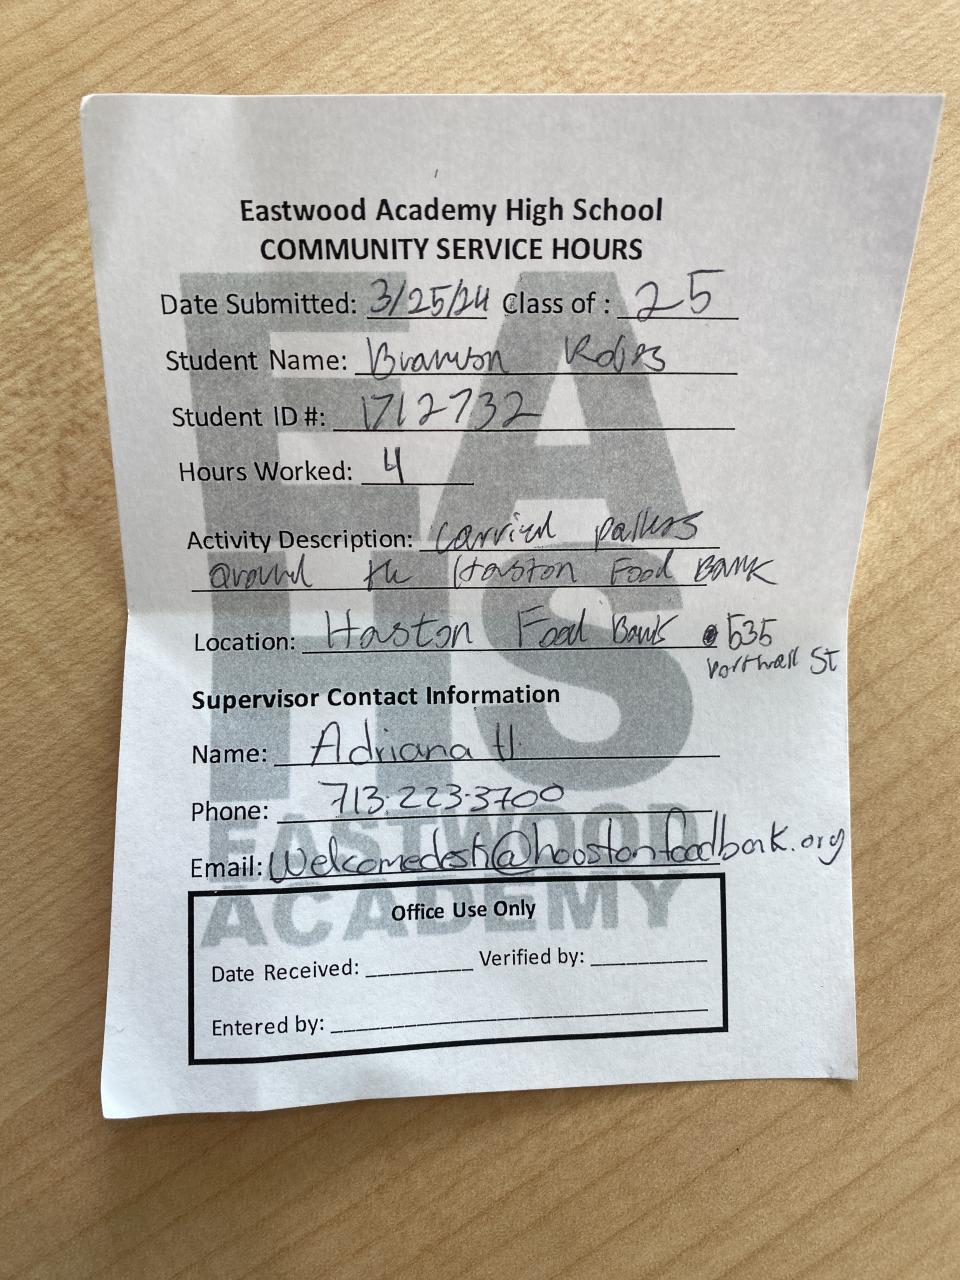 Eastwood Academy High School
COMMUNITY SERVICE HOURS
Date Submitted: 3/25/24 Class of : 25
Student Name:
Student ID #: 1712732
Hours Worked: 4
Activity Description: Carried pallets
around the Houston Food BANK
Location: Houston Food Bank 535
Portwall St
Supervisor Contact Information
Name: Adriana H.
Phone: 713-223-3700
Email: Welcomedesk@houstonfoodbank.org
EASTWOOD
ACADEMY
Office Use Only
Date Received: ________ Verified by: ________
Entered by: ________